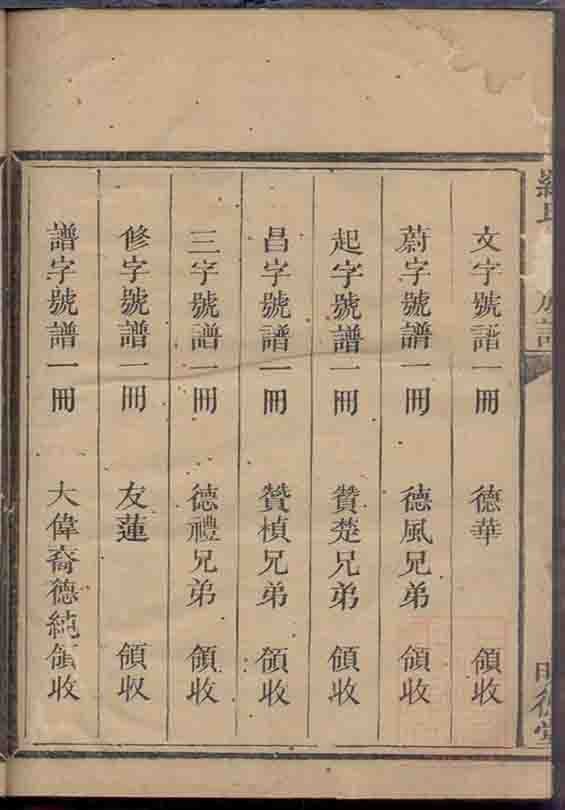 文字號譜一冊 德華 領收
蔚字號譜一冊 德風兄弟 領收
起字號譜一冊 贊楚兄弟 領收
昌字號譜一冊 贊楨兄弟 領收
三字號譜一冊 德禮兄弟 領收
修字號譜一冊 友蓮 領収
譜字號譜一冊 大偉裔德純領收
氏 族譜
德堂